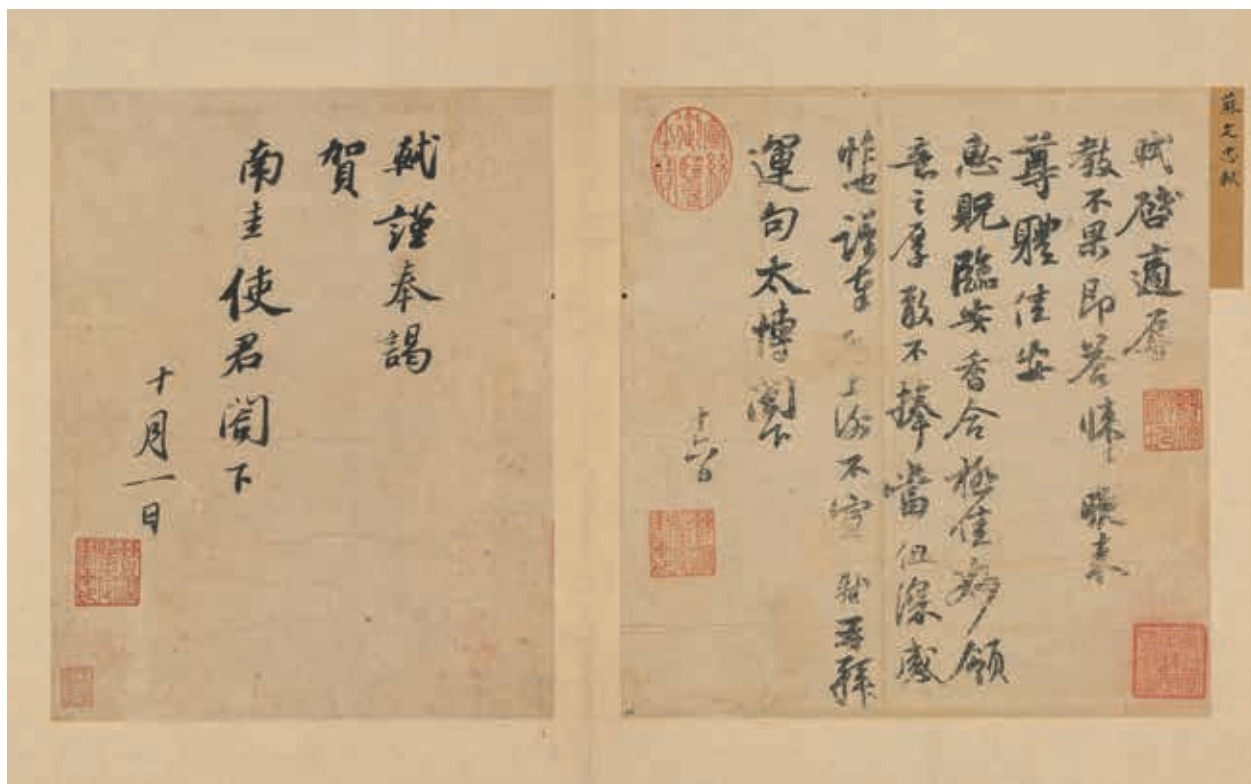 蘇文忠軾
軾啓適辱
教不果即答悚〻晚來
尊體佳安
惠貺臨安香合極佳妙領
意之厚敢不捧當但深感
怍也謹奉上謝不宣 軾再拜
運句太博閣下
十六日
宣統御覽之寶
軾謹奉謁
賀
南圭使君閣下
十月一日